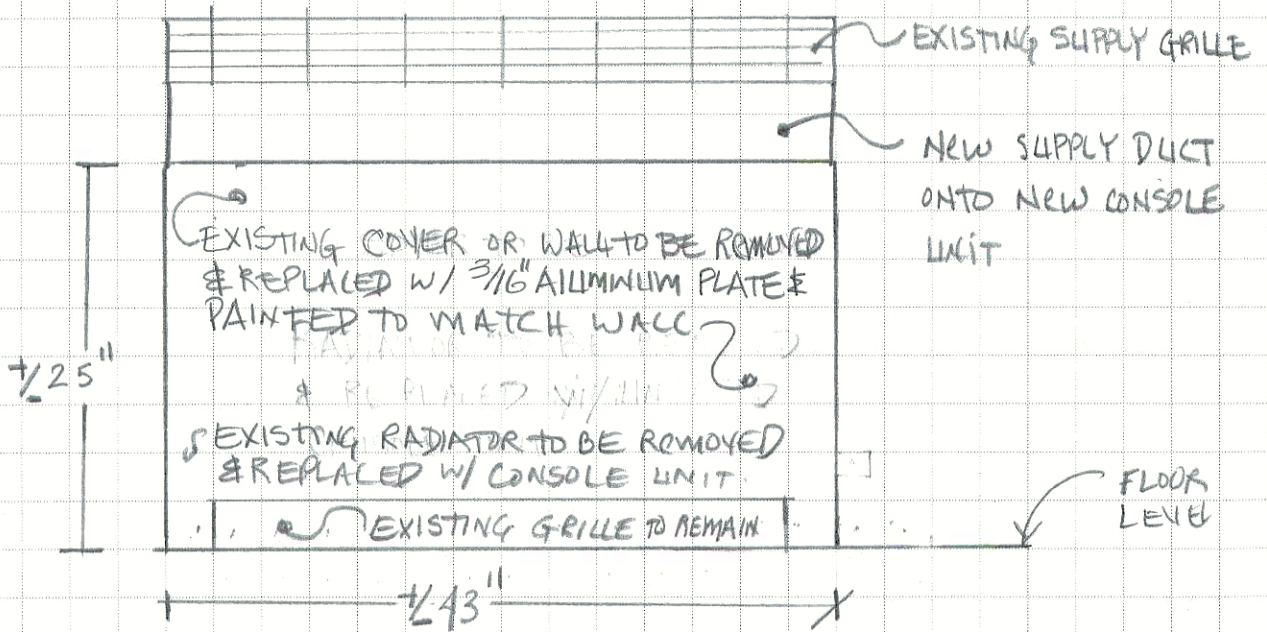 EXISTING SUPPLY GRILLE
NEW SUPPLY DUCT
ONTO NEW CONSOLE
UNIT
EXISTING COVER OR WALL TO BE REMOVED
& REPLACED W/ 3/16" ALUMINUM PLATE &
PAINTED TO MATCH WALL
& REPLACED W/
+/- 25"
EXISTING RADIATOR TO BE REMOVED
& REPLACED W/ CONSOLE UNIT.
EXISTING GRILLE TO REMAIN
FLOOR
LEVEL
+/- 43"